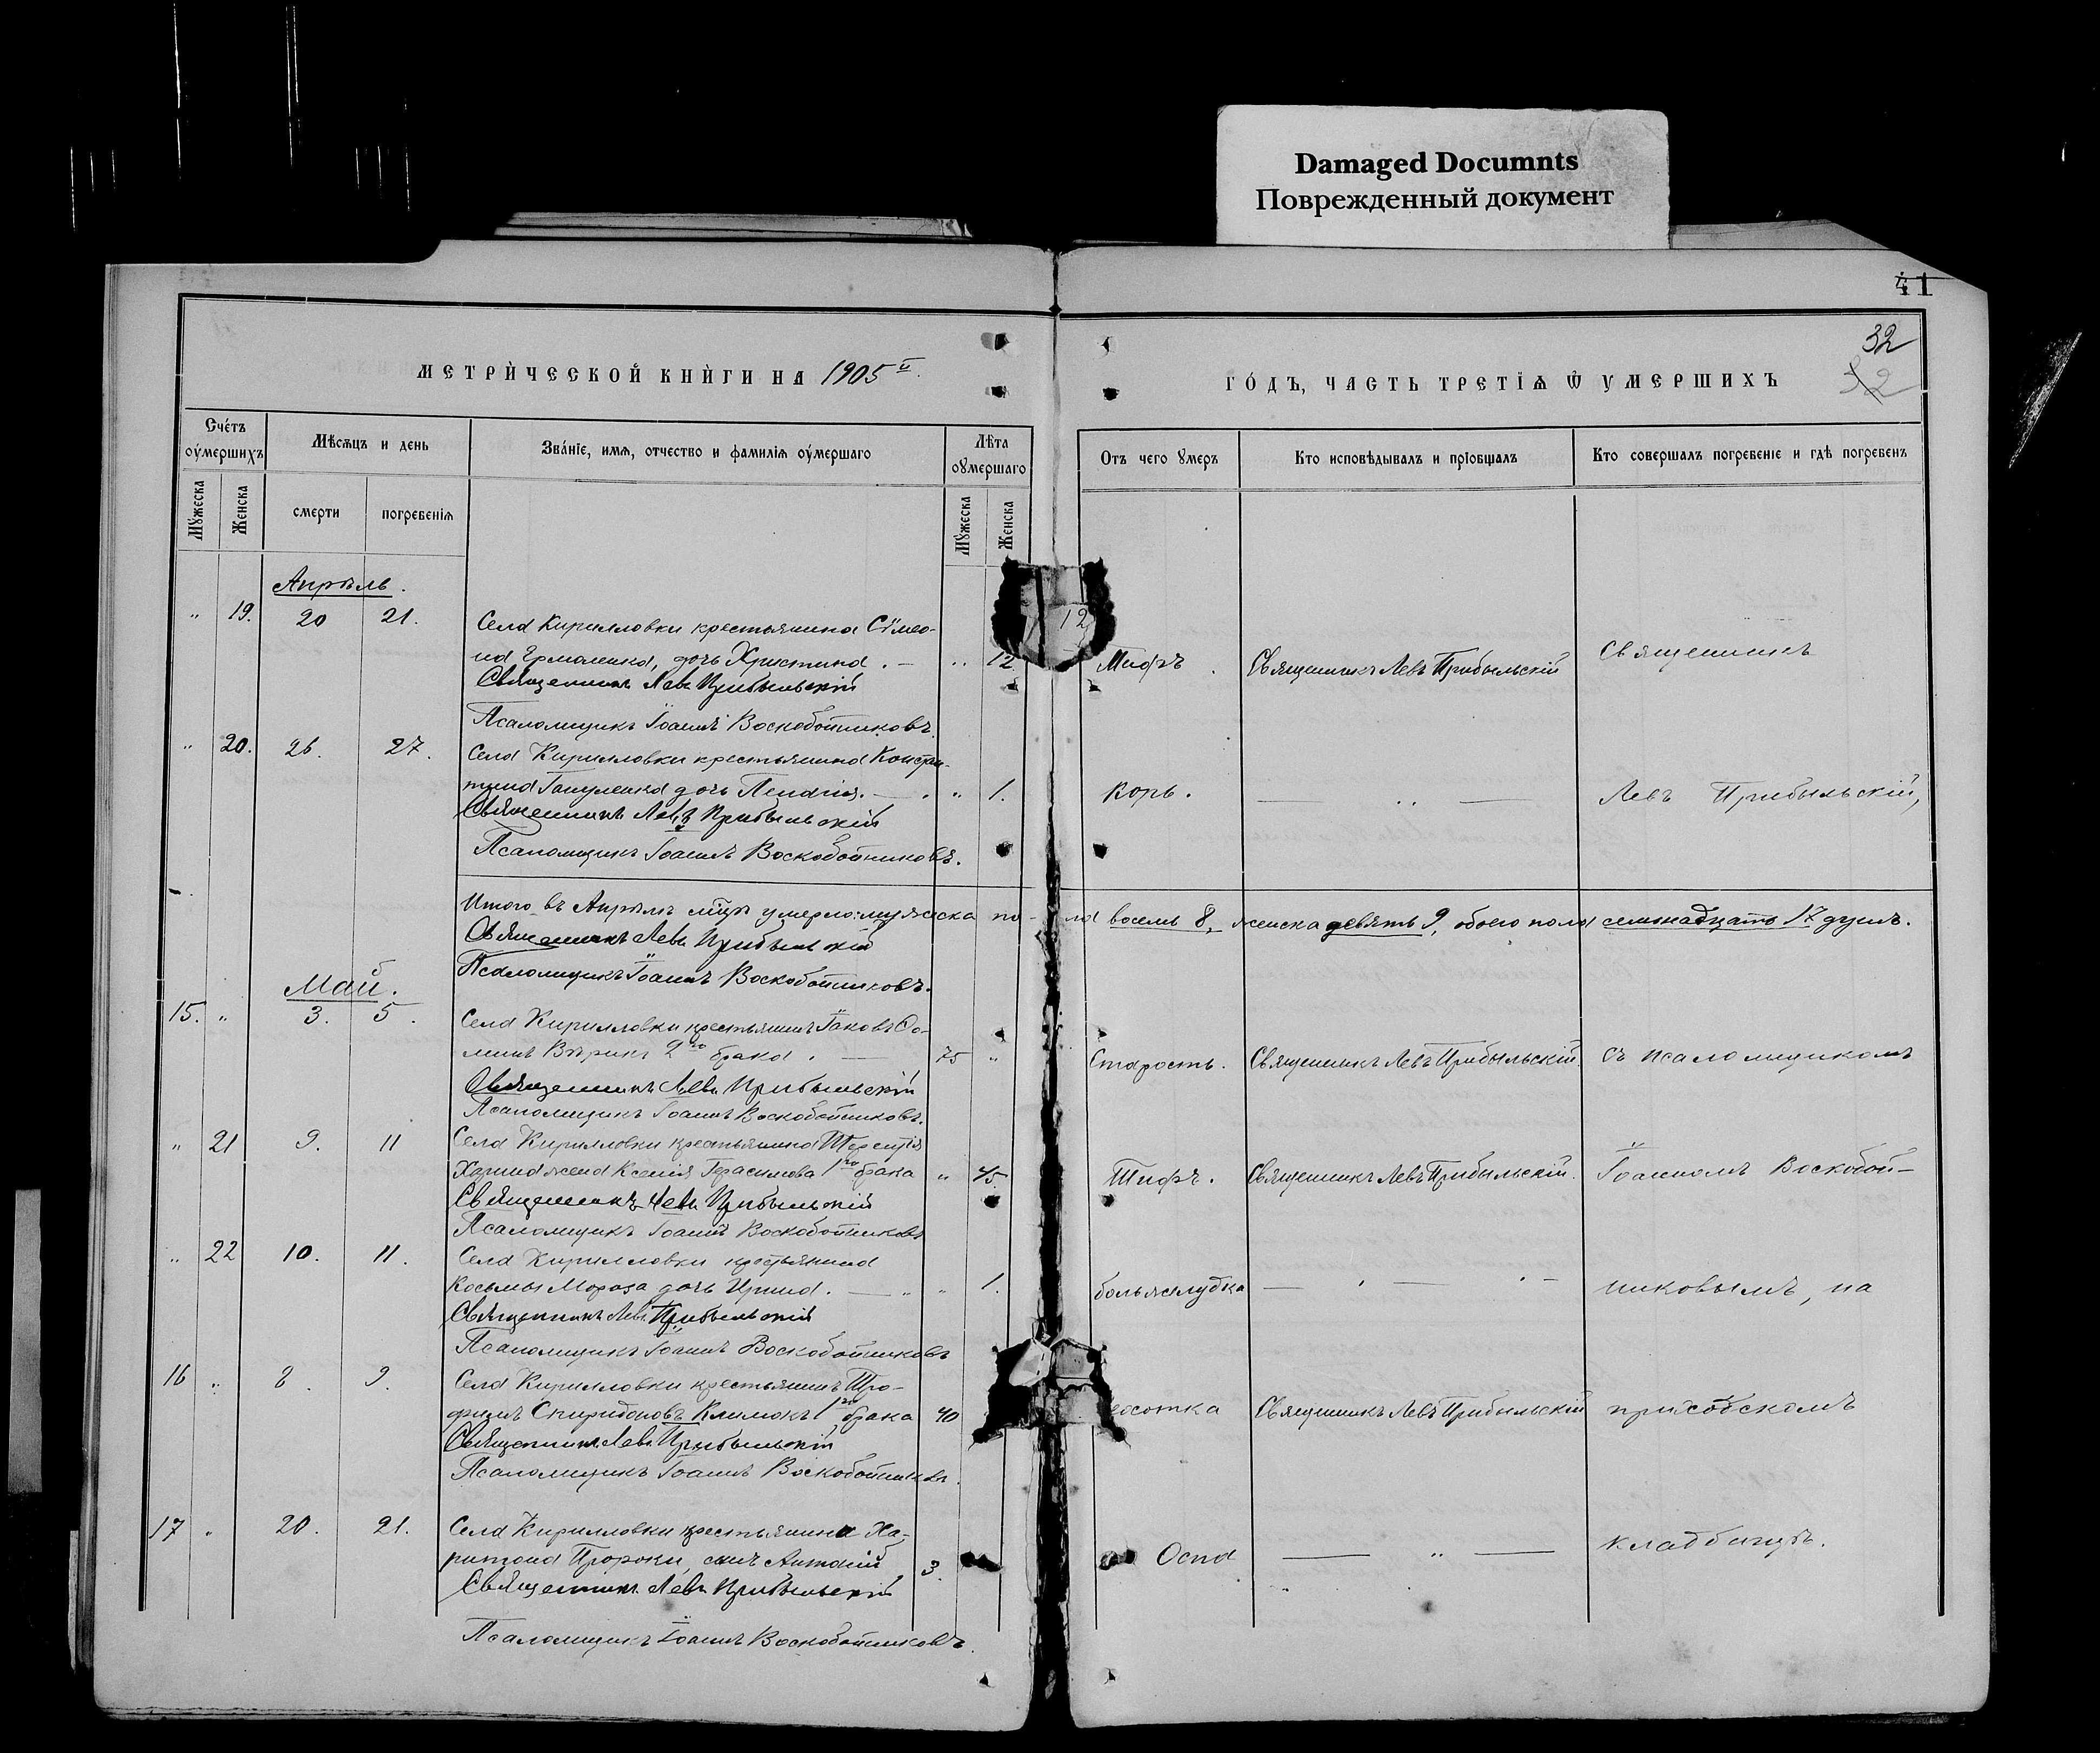 Damaged Documnts
Поврежденный документ
41
32
32
МЕТРИЧЕСКОЙ КНИГИ НА 1905й
ГОДЪ, ЧАСТЬ ТРЕТІѦ Ѿ УМЕРШИХЪ
Счетъ оумершихъ
Мѣсѧцъ и день
Званіе, имѧ, отчество и фамиліѧ оумершаго
Лѣта оумершаго
Отъ чего умеръ
Кто исповѣдывалъ и пріобщалъ
Кто совершалъ погребеніе и гдѣ погребенъ
Мужеска
Женска
смерти
погребеніѧ
Мужеска
Женска
Апрѣль.
" 19. 20 21. Села Кирилловки крестьянина Сѵмео-
на Ермоленка, дочь Христина. — " 12 Тифъ. Священникъ Левъ Прибыльскій Священникъ
Священникъ Левъ Прибыльскій
Псаломщикъ Іоаннъ Воскобойниковъ.
" 20. 26. 27. Села Кирилловки крестьянина Констан-
тина дочь — " 1. Корь. — " — Левъ Прибыльскій,
Священникъ Левъ Прибыльскій
Псаломщикъ Іоаннъ Воскобойниковъ.
Итого въ Апрѣлѣ мцѣ умерло: мужеска по-ла восемь 8, женска девять 9, обоего пола семнадцать 17 душъ.
Священникъ Левъ Прибыльскій
Псаломщикъ Іоаннъ Воскобойниковъ.
Май.
15. " 3. 5. Села Кирилловки крестьянинъ Іаковъ Ѳо-
минъ 2го брака. — 75 " Старость. Священникъ Левъ Прибыльскій. съ псаломщикомъ
Священникъ Левъ Прибыльскій
Псаломщикъ Іоаннъ Воскобойниковъ.
" 21 9. 11 Села Кирилловки крестьянина Терентія
жена Ксенія Герасимова 1го брака " 45. Тифъ. Священникъ Левъ Прибыльскій. Іоанномъ Воскобой-
Священникъ Левъ Прибыльскій
Псаломщикъ Іоаннъ Воскобойниковъ
" 22 10. 11. Села Кирилловки крестьянина
Космы Мороза дочь Ирина. — " " 1. боль желудка — " — " — никовымъ, на
Священникъ Левъ Прибыльскій
Псаломщикъ Іоаннъ Воскобойниковъ
16 " 8. 9. Села Кирилловки крестьянинъ Тро-
фимъ Спиридоновъ Климокъ 1го брака 40 Священникъ Левъ Прибыльскій приходскомъ
Священникъ Левъ Прибыльскій
Псаломщикъ Іоаннъ Воскобойниковъ.
17 " 20. 21. Села Кирилловки крестьянина Ха-
ритона сынъ Антоній 3. Оспа — " — кладбищѣ.
Священникъ Левъ Прибыльскій
Псаломщикъ Іоаннъ Воскобойниковъ.